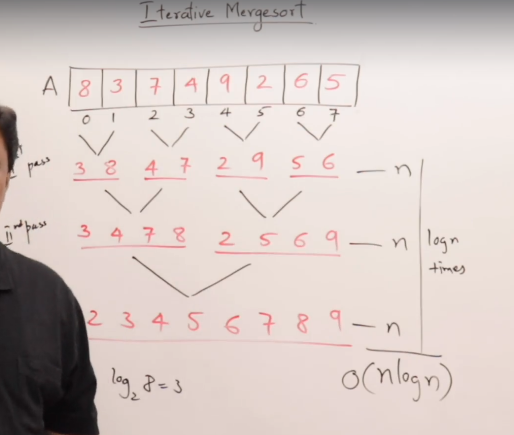 Iterative Mergesort
A 8 3 7 4 9 2 6 5
0 1 2 3 4 5 6 7
pass 3 8 4 7 2 9 5 6 — n
IInd pass 3 4 7 8 2 5 6 9 — n logn
times
2 3 4 5 6 7 8 9 — n
log₂ 8 = 3 O(nlogn)